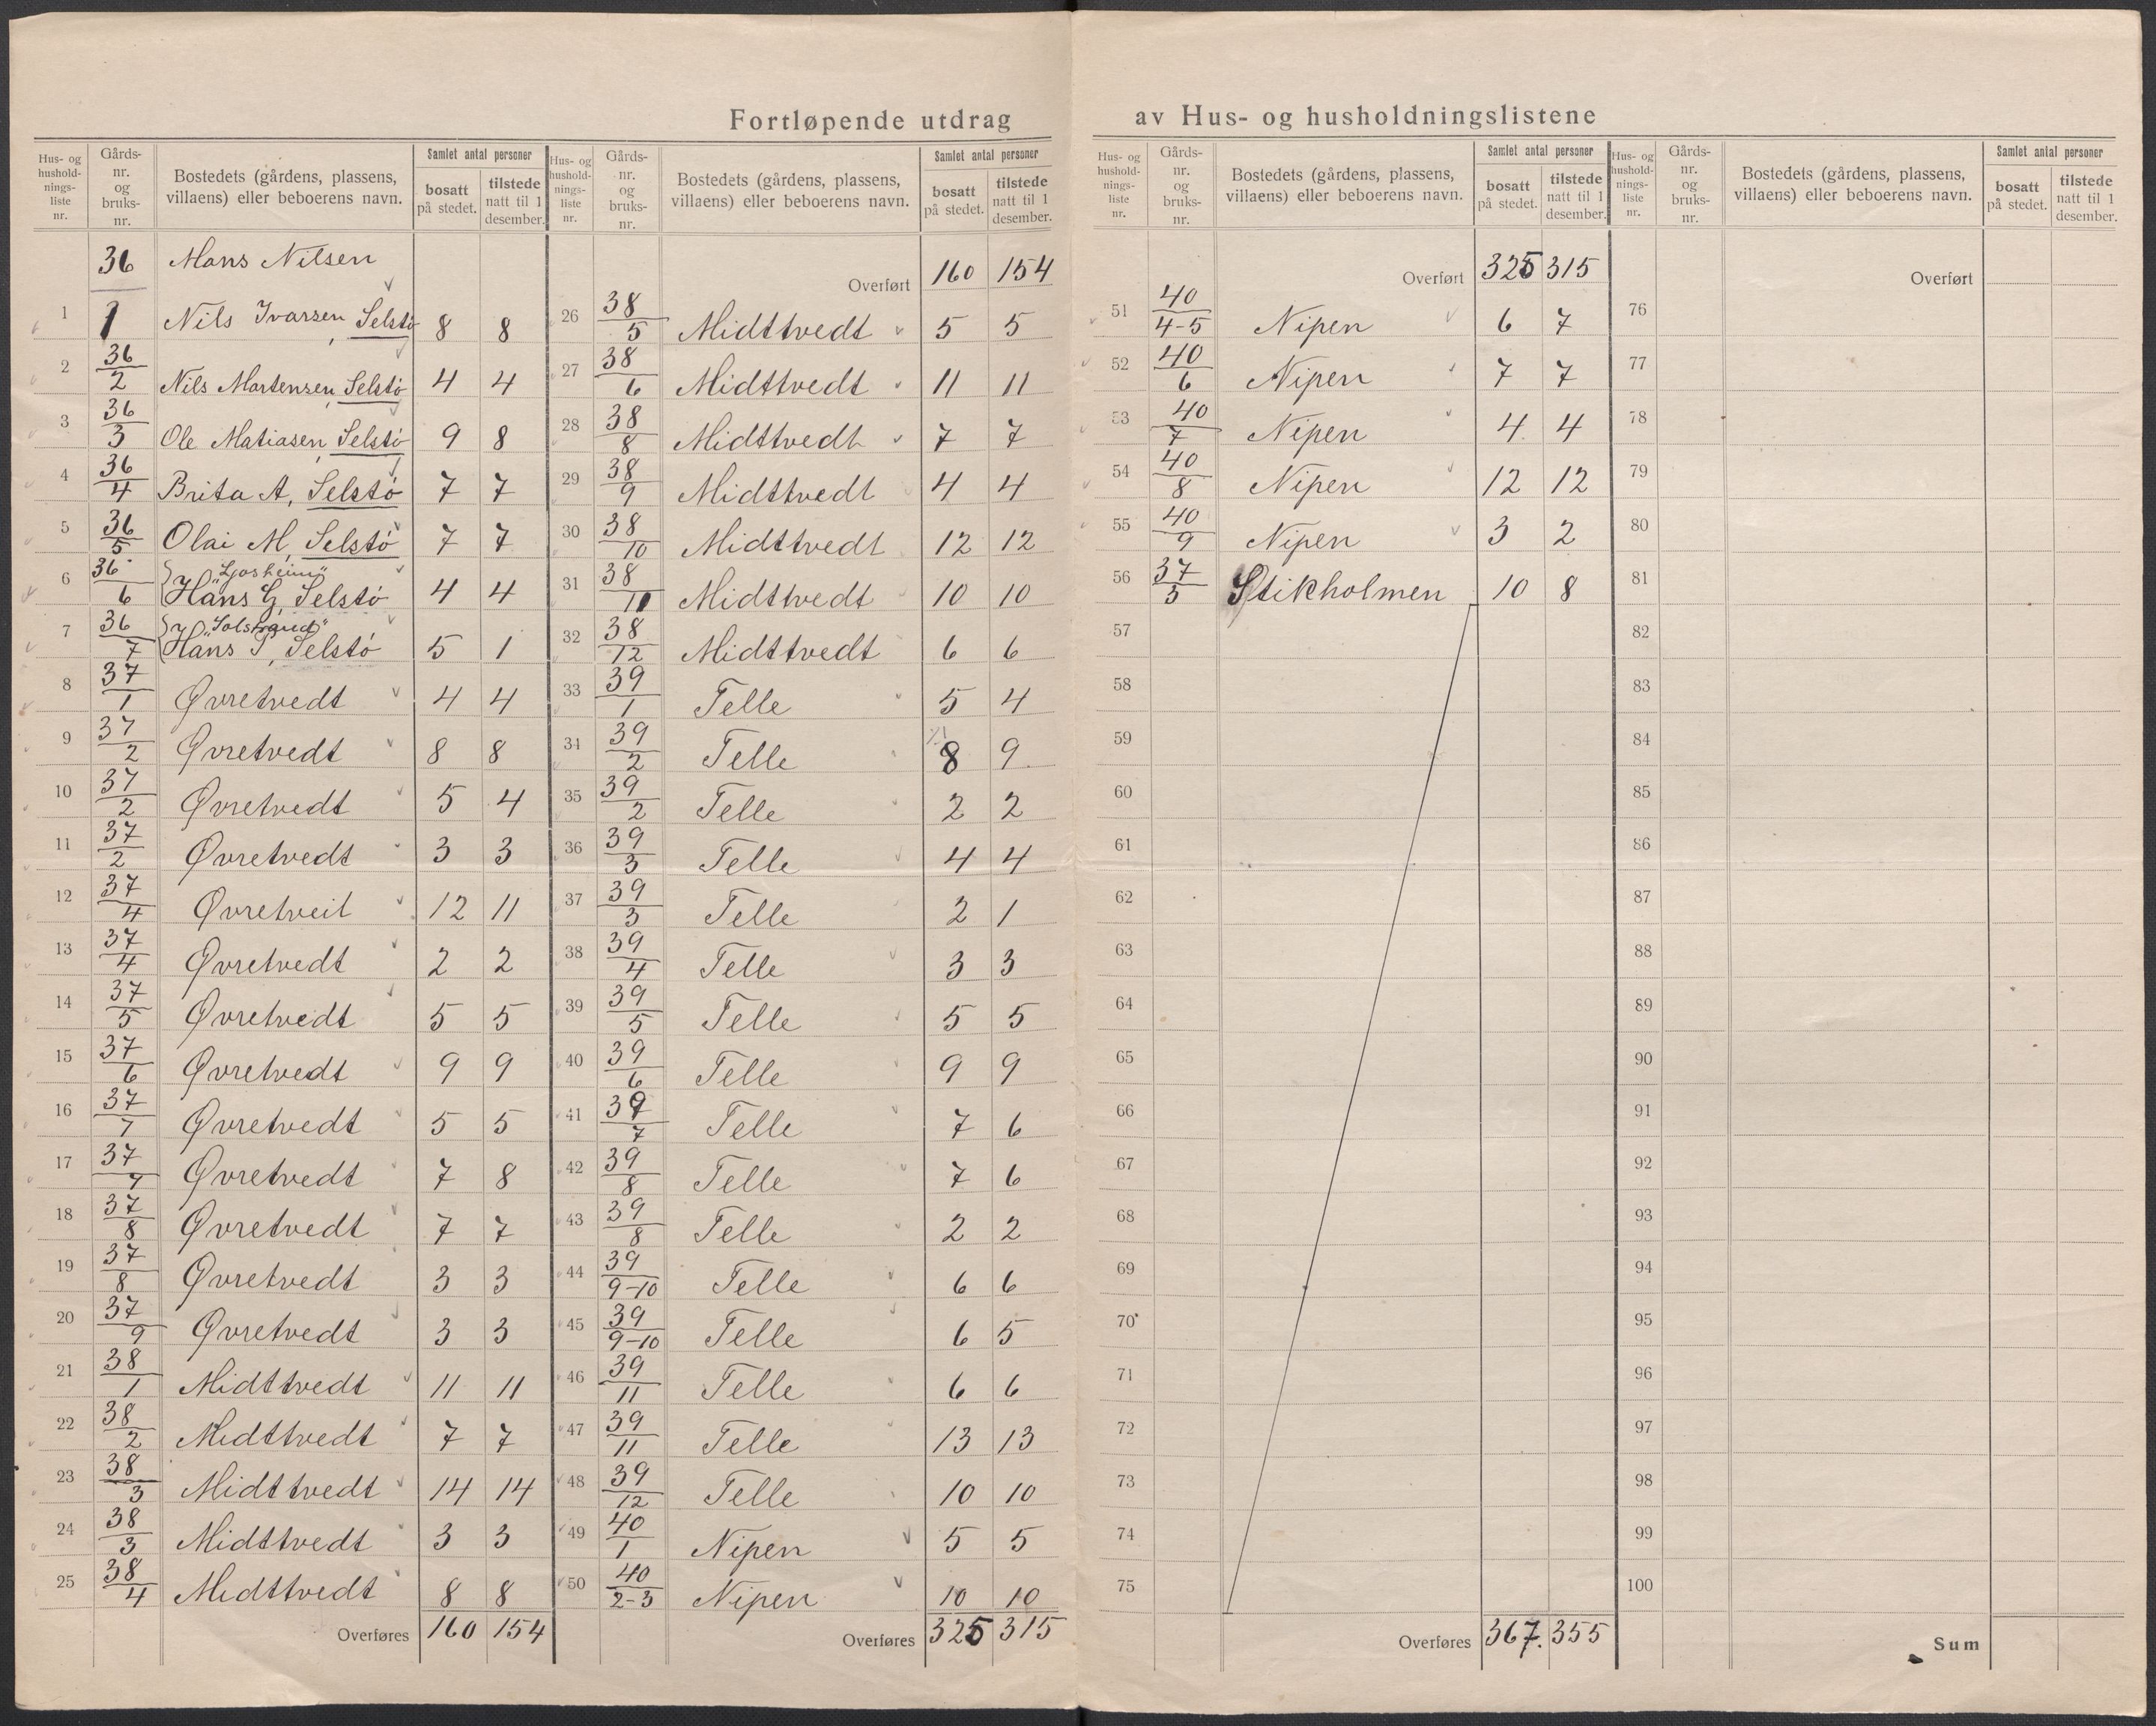 Fortløpende utdrag av Hus- og husholdningslistene
Hus- og husholdnings-liste nr. | Gårds-nr. og bruks-nr. | Bostedets (gårdens, plassens, villaens) eller beboerens navn. | Samlet antal personer | bosatt på stedet. | tilstede natt til 1 desember.
36 Mons Nilsen
1 1 Nils Ivarsen, Selstø 8 8
2 36/2 Nils Martensen, Selstø 4 4
3 36/3 Ole Matiasen, Selstø 9 8
4 36/4 Brita A, Selstø 7 7
5 36/5 Olai M, Selstø 7 7
6 36/6 "Ljosheim" Hans G, Selstø 4 4
7 36/7 "Solstrand" Hans J, Selstø 5 1
8 37/1 Øvretvedt 4 4
9 37/2 Øvretvedt 8 8
10 37/2 Øvretvedt 5 4
11 37/2 Øvretvedt 3 3
12 37/4 Øvretveit 12 11
13 37/4 Øvretvedt 2 2
14 37/5 Øvretvedt 5 5
15 37/6 Øvretvedt 9 9
16 37/7 Øvretvedt 5 5
17 37/7 Øvretvedt 7 8
18 37/8 Øvretvedt 7 7
19 37/8 Øvretvedt 3 3
20 37/9 Øvretvedt 3 3
21 38/1 Midttvedt 11 11
22 38/2 Midttvedt 7 7
23 38/3 Midttvedt 14 14
24 38/3 Midttvedt 3 3
25 38/4 Midttvedt 8 8
Overføres 160 154
Hus- og husholdnings-liste nr. | Gårds-nr. og bruks-nr. | Bostedets (gårdens, plassens, villaens) eller beboerens navn. | Samlet antal personer | bosatt på stedet. | tilstede natt til 1 desember.
Overført 160 154
26 38/5 Midttvedt 5 5
27 38/6 Midttvedt 11 11
28 38/8 Midttvedt 7 7
29 38/9 Midttvedt 4 4
30 38/10 Midttvedt 12 12
31 38/11 Midttvedt 10 10
32 38/12 Midttvedt 6 6
33 39/1 Telle 5 4
34 39/2 Telle 8 9
35 39/2 Telle 2 2
36 39/3 Telle 4 4
37 39/3 Telle 2 1
38 39/4 Telle 3 3
39 39/5 Telle 5 5
40 39/6 Telle 9 9
41 39/7 Telle 7 6
42 39/8 Telle 7 6
43 39/8 Telle 2 2
44 39/9-10 Telle 6 6
45 39/9-10 Telle 6 5
46 39/11 Telle 6 6
47 39/11 Telle 13 13
48 39/12 Telle 10 10
49 40/1 Nipen 5 5
50 40/2-3 Nipen 10 10
Overføres 325 315
Hus- og husholdnings-liste nr. | Gårds-nr. og bruks-nr. | Bostedets (gårdens, plassens, villaens) eller beboerens navn. | Samlet antal personer | bosatt på stedet. | tilstede natt til 1 desember.
Overført 325 315
51 40/4-5 Nipen 6 7
52 40/6 Nipen 7 7
53 40/7 Nipen 4 4
54 40/8 Nipen 12 12
55 40/9 Nipen 3 2
56 37/3 Stikholmen 10 8
57
58
59
60
61
62
63
64
65
66
67
68
69
70
71
72
73
74
75
Overføres 367. 355
Hus- og husholdnings-liste nr. | Gårds-nr. og bruks-nr. | Bostedets (gårdens, plassens, villaens) eller beboerens navn. | Samlet antal personer | bosatt på stedet. | tilstede natt til 1 desember.
Overført
76
77
78
79
80
81
82
83
84
85
86
87
88
89
90
91
92
93
94
95
96
97
98
99
100
Sum